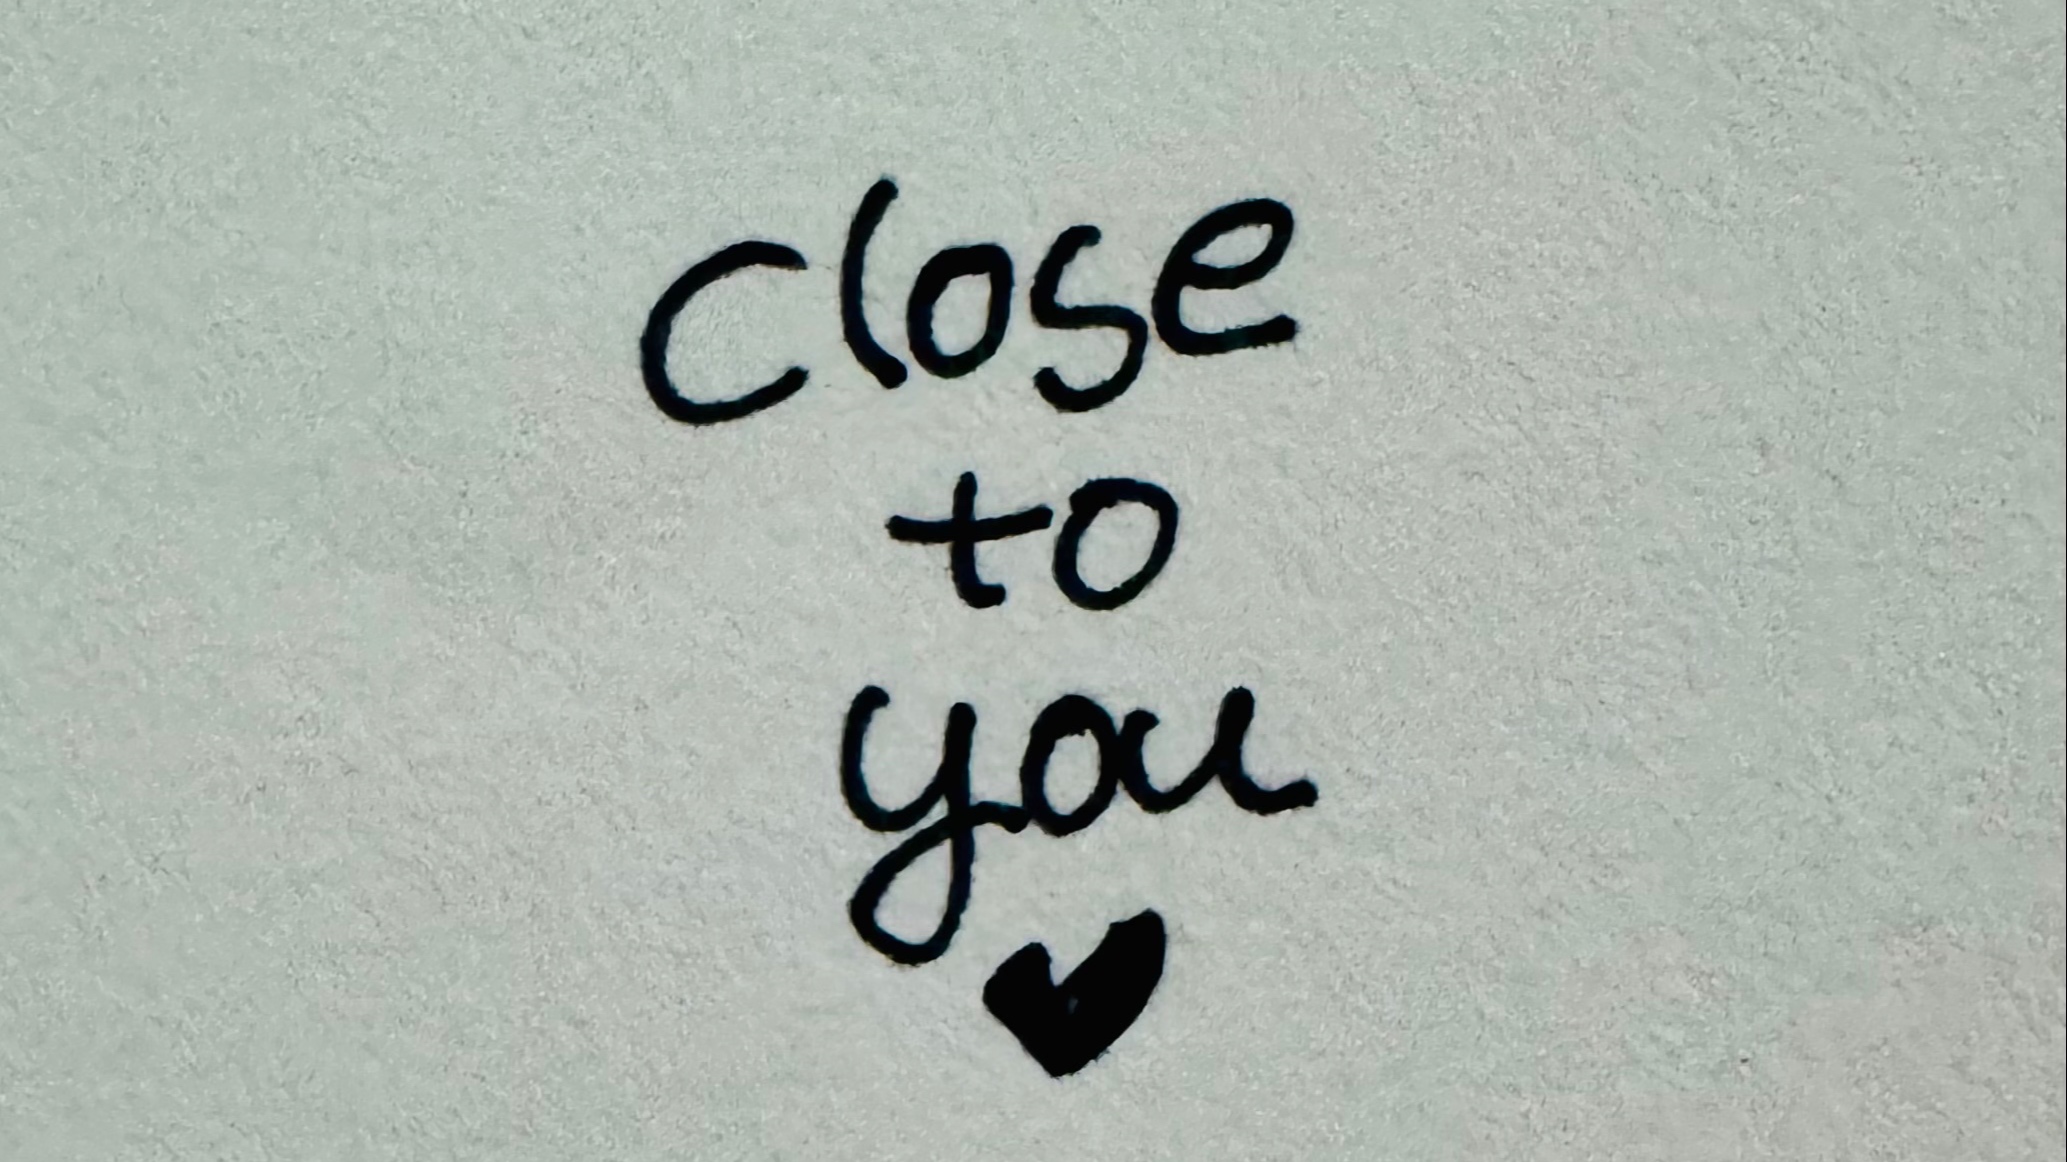 close
to
you
♥